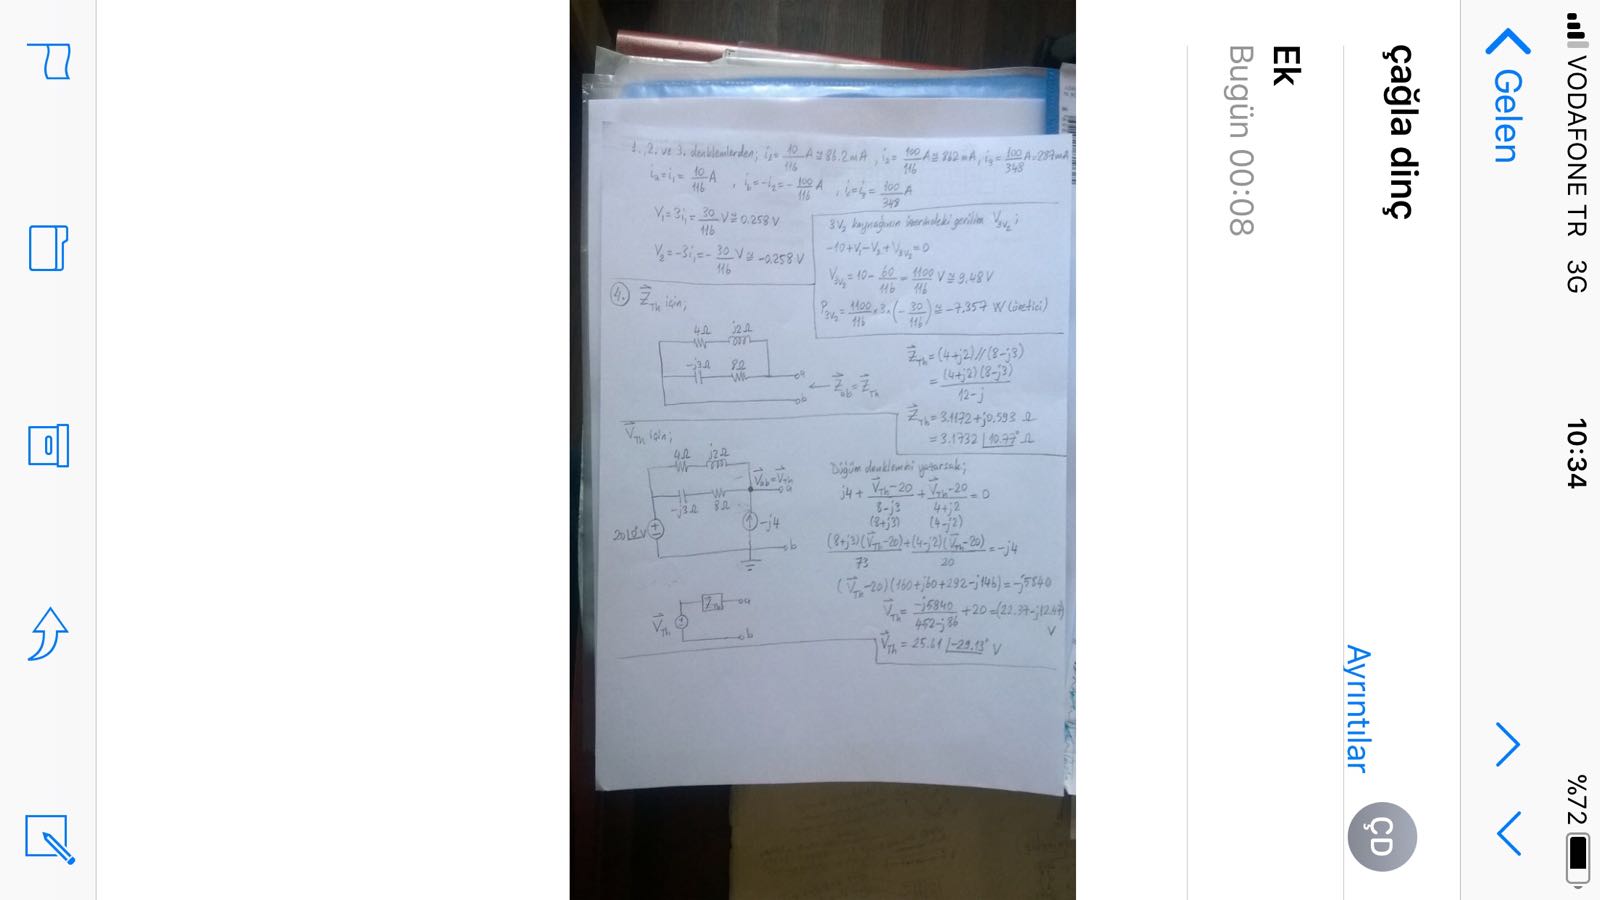 VODAFONE TR 3G 10:34 %72
Gelen
çağla dinç
Ayrıntılar
ÇD
Ek
Bugün 00:08
1., 2. ve 3. denklemlerden; i₁= 10/116 A ≅ 86.2 mA , i₂= 100/116 A ≅ 862 mA , i₃= 100/348 A ≅ 287 mA
iₐ=i₁= 10/116 A , i_b=-i₂=- 100/116 A , i_c=i₃= 100/348 A
V₁=3i₁= 30/116 V ≅ 0.258 V
V₂=-3i₁=- 30/116 V ≅ -0.258 V
3V₂ kaynağının üzerindeki gerilim V₃ᵥ₂;
-10+V₁-V₂+V₃ᵥ₂=0
V₃ᵥ₂=10- 60/116 = 1100/116 V ≅ 9.48 V
P₃ᵥ₂= 1100/116 × 3 × (- 30/116) ≅ -7.357 W (üretici)
4. Z_Th için;
4Ω j2Ω
-j3Ω 8Ω
a
b
← Z_ab=Z_Th
Z_Th=(4+j2)//(8-j3)
= (4+j2)(8-j3) / 12-j
Z_Th=3.1172+j0.593 Ω
=3.1732 ∠10.77° Ω
V_Th için;
4Ω j2Ω
V_ab=V_Th
a
-j3Ω 8Ω
-j4
20∠0° V
b
Z_Th a
V_Th
b
Düğüm denklemini yazarsak;
j4 + (V_Th-20)/(8-j3) + (V_Th-20)/(4+j2) = 0
(8+j3) (4-j2)
(8+j3)(V_Th-20)/73 + (4-j2)(V_Th-20)/20 = -j4
(V_Th-20)(160+j60+292-j146)=-j5840
V_Th= -j5840/(452-j86) +20=(22.37-j12.47) V
V_Th = 25.61 ∠-29.13° V